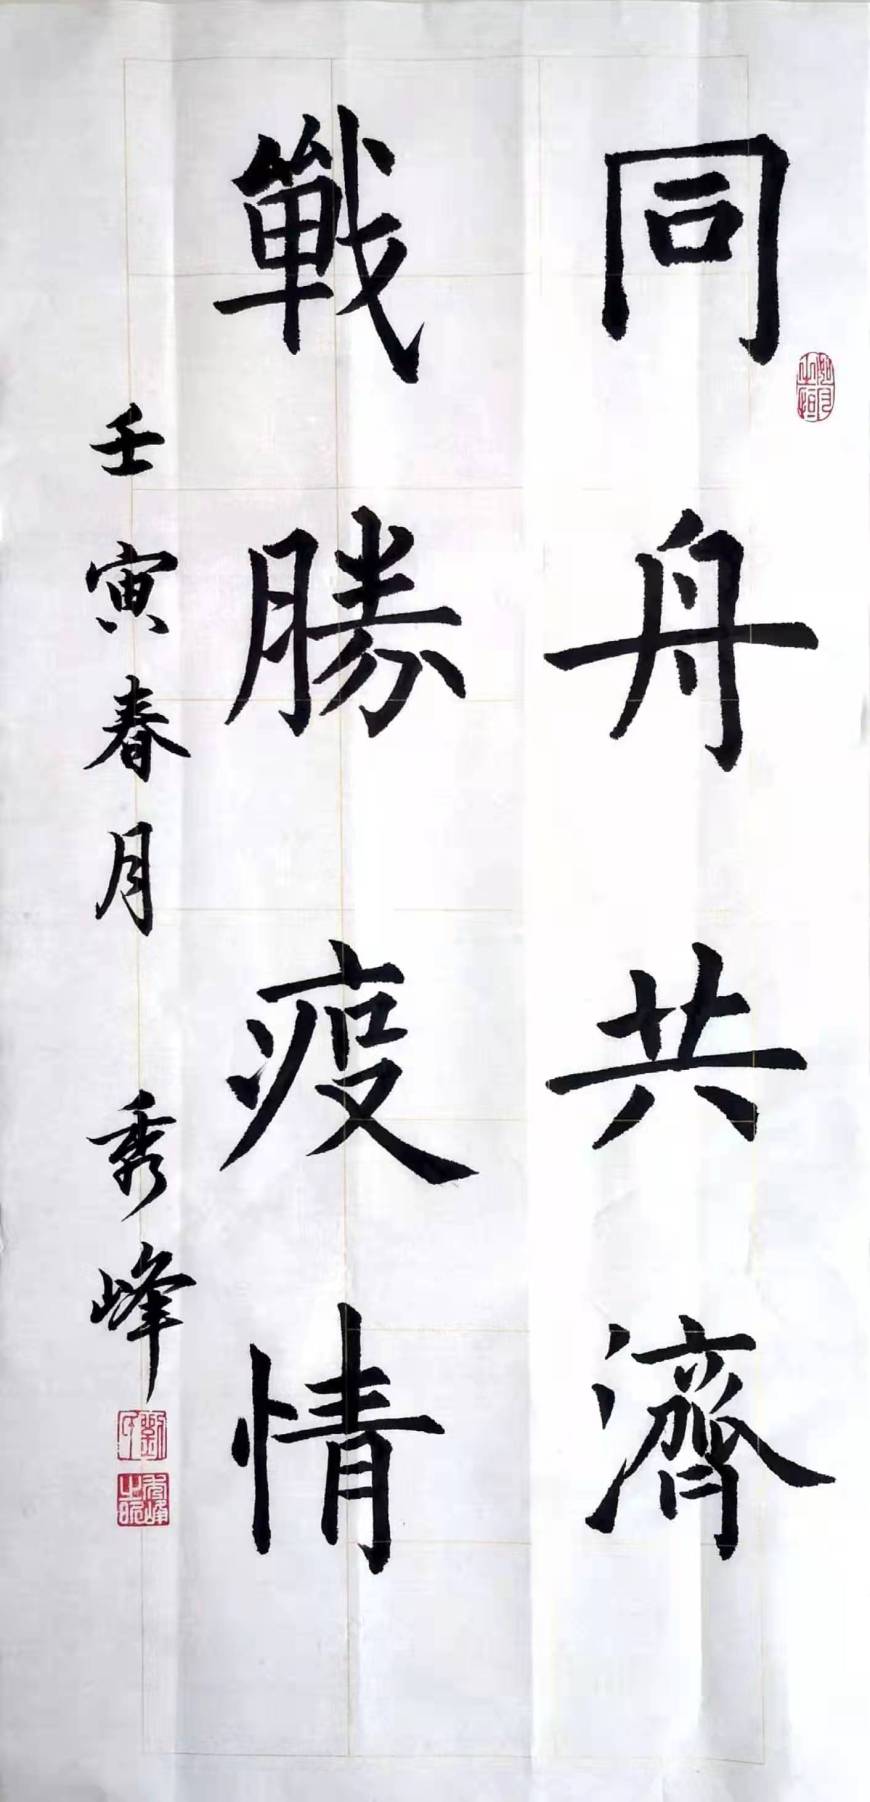 同舟共濟
戰勝疫情
壬寅春月 秀峰